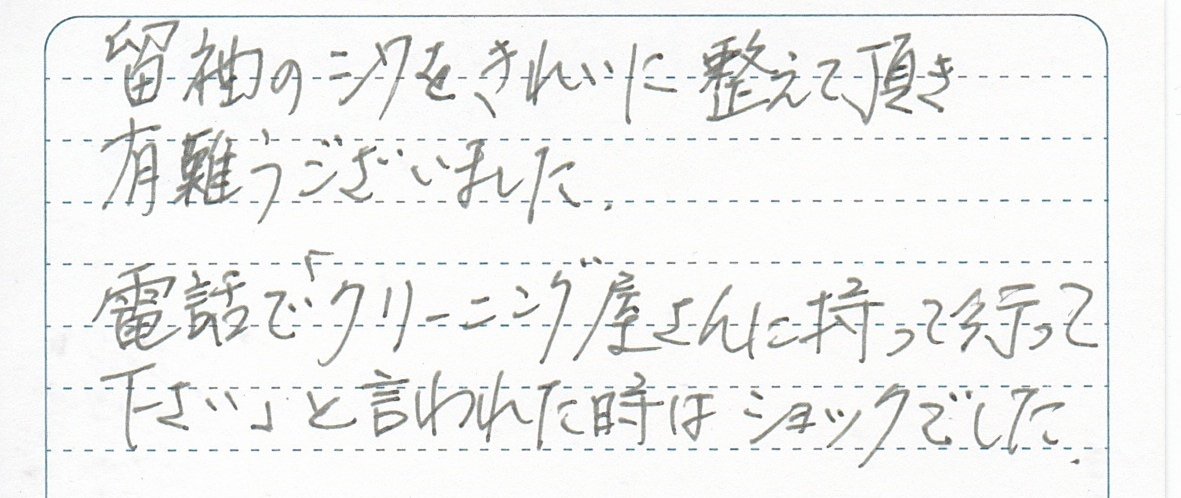 留袖のシワをきれいに整えて頂き
有難うございました.
電話で「クリーニング屋さんに持って行って
下さい」と言われた時はショックでした.